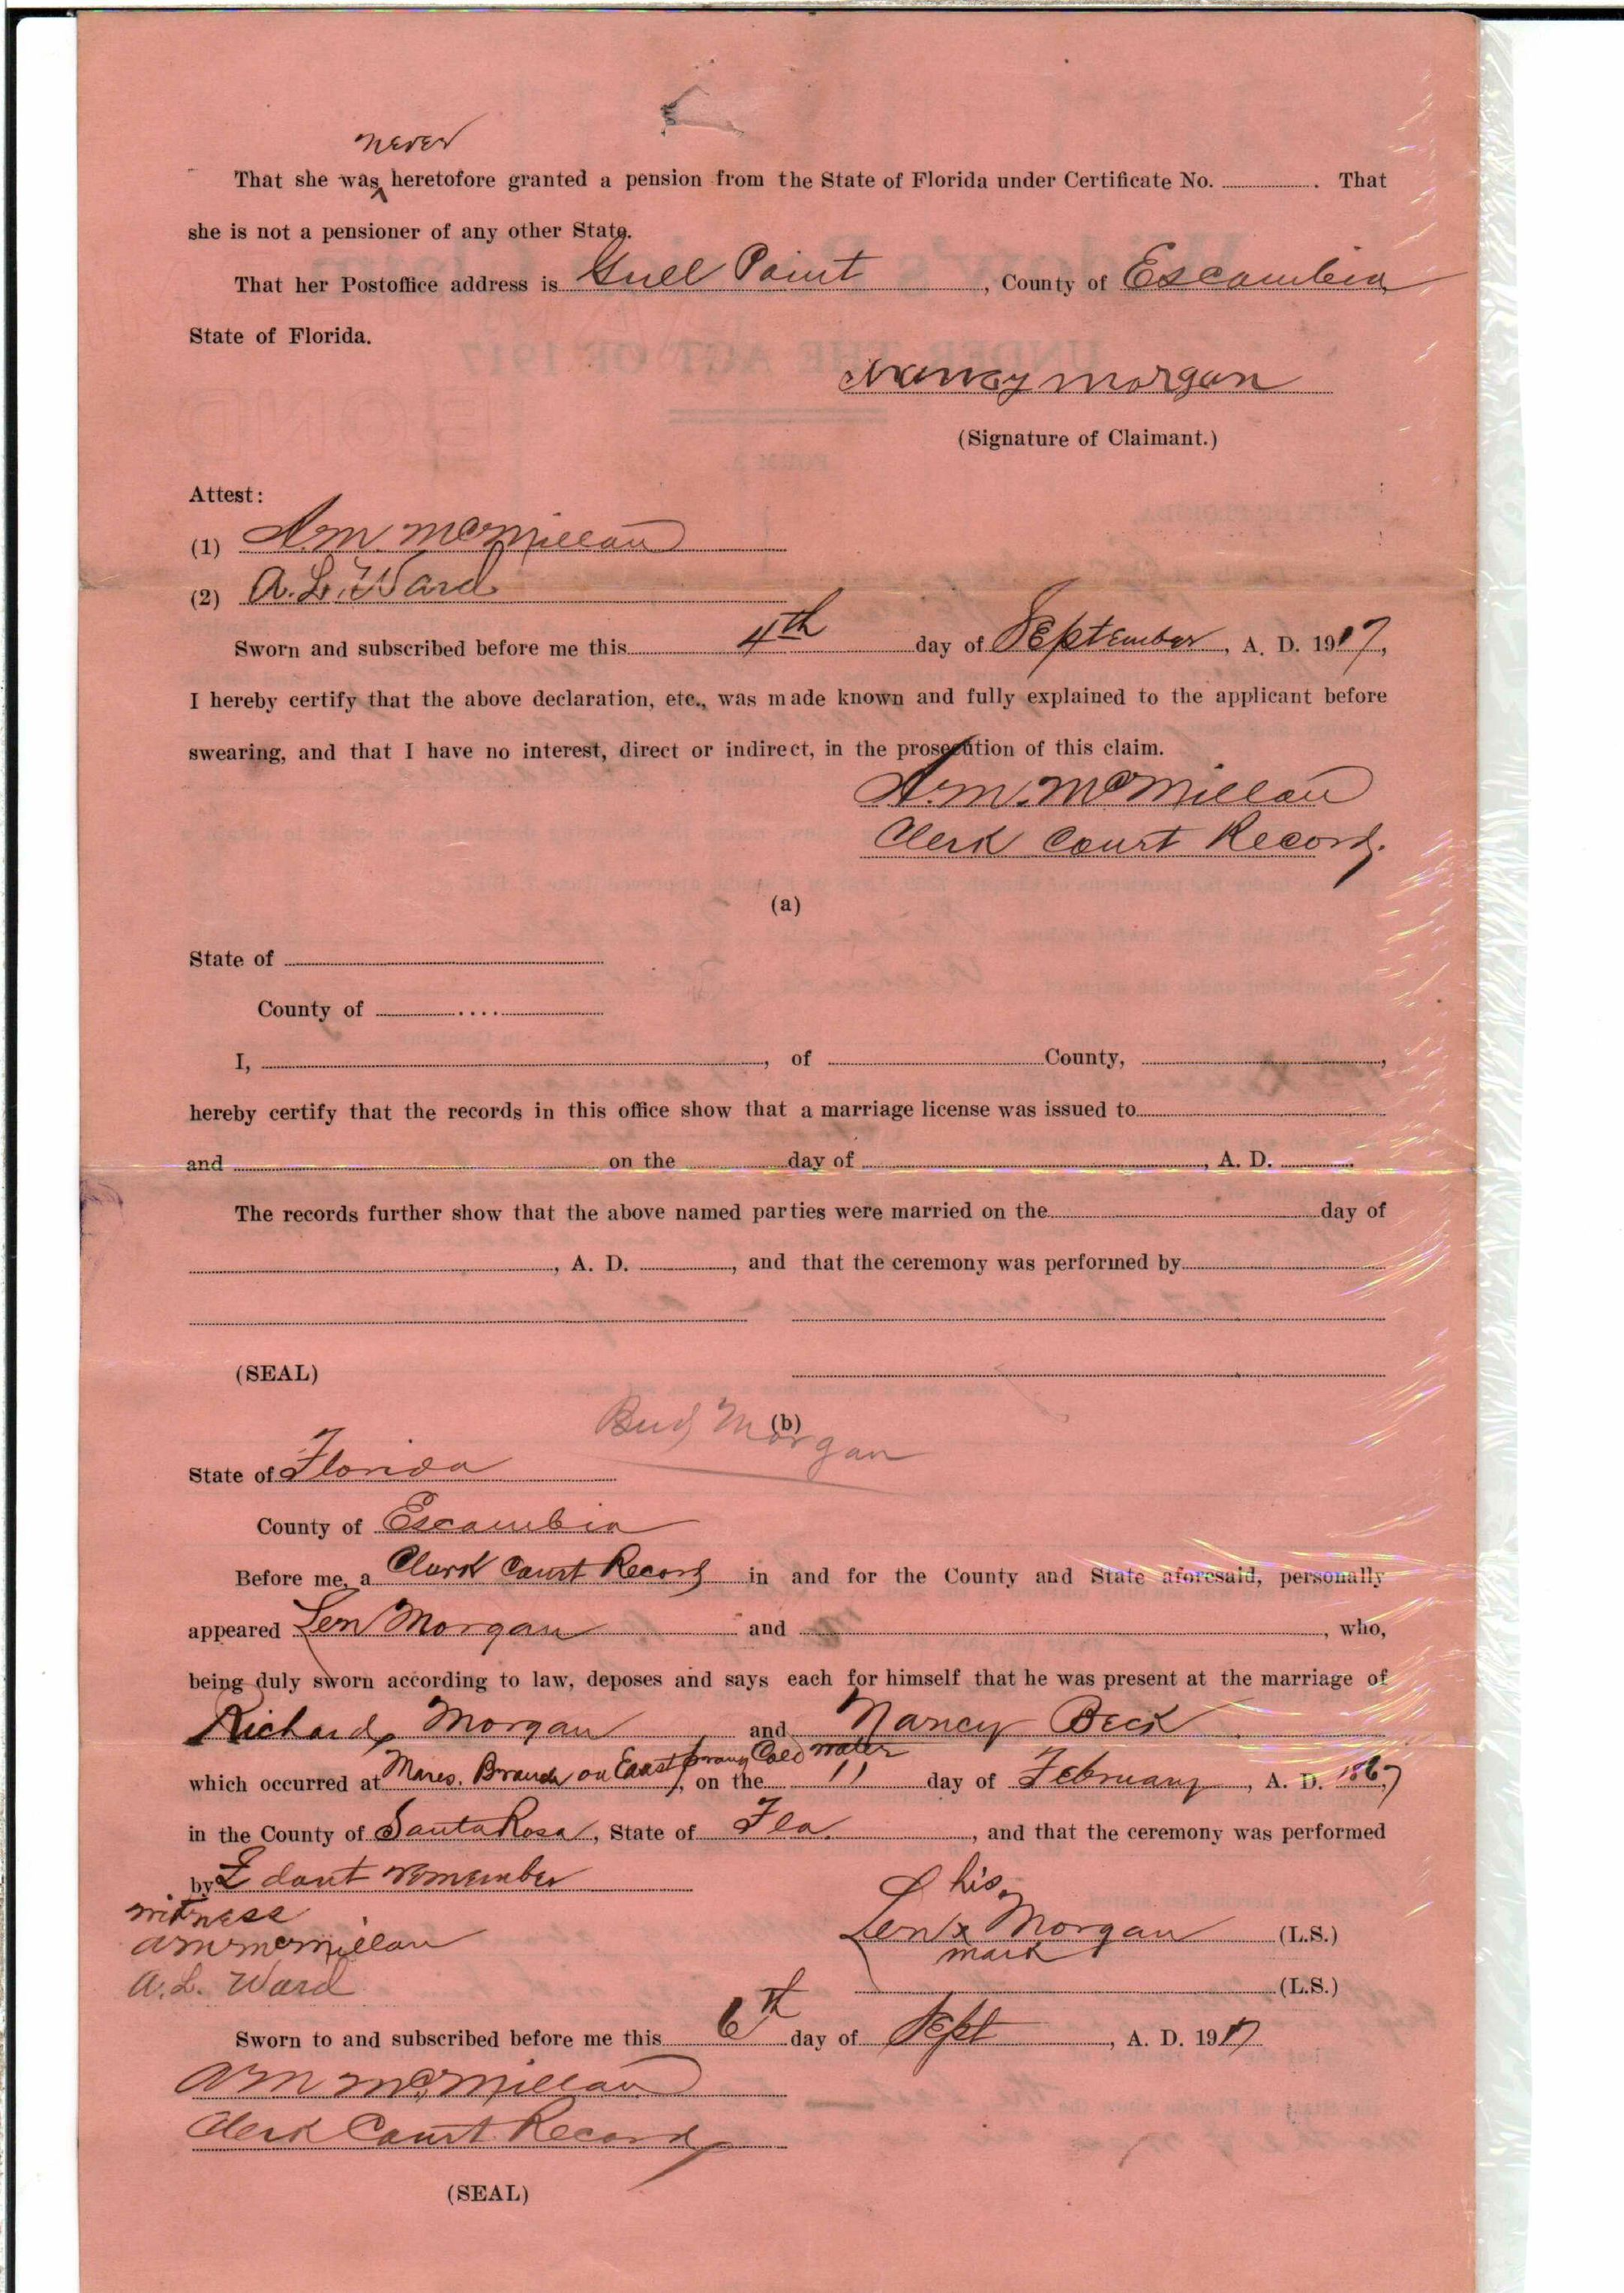 never
That she was heretofore granted a pension from the State of Florida under Certificate No. . That
she is not a pensioner of any other State.
That her Postoffice address is Gull Point, County of Escambia
State of Florida.
Nancy Morgan
(Signature of Claimant.)
Attest:
(1) A.M. McMillan
(2) A. L. Ward
Sworn and subscribed before me this 4th day of September, A. D. 1917,
I hereby certify that the above declaration, etc., was made known and fully explained to the applicant before
swearing, and that I have no interest, direct or indirect, in the prosecution of this claim.
A. M. McMillan
Clerk Court Record.
(a)
State of
County of
I, , of County, ,
hereby certify that the records in this office show that a marriage license was issued to
and on the day of , A. D.
The records further show that the above named parties were married on the day of
, A. D. , and that the ceremony was performed by
(SEAL)
(b)
Bud Morgan
State of Florida
County of Escambia
Before me, a Clerk Court Record in and for the County and State aforesaid, personally
appeared Len Morgan and , who,
being duly sworn according to law, deposes and says each for himself that he was present at the marriage of
Richard Morgan and Nancy Beck
which occurred at Mares. Branch on East Cold water, on the 11 day of February, A. D. 1867
in the County of Santa Rosa, State of Fla., and that the ceremony was performed
by I dont remember
witness
AM McMillan
A. L. Ward
his
Len x Morgan (L.S.)
mark
(L.S.)
Sworn to and subscribed before me this 6th day of Sept, A. D. 1917
AM McMillan
Clerk Court Record
(SEAL)